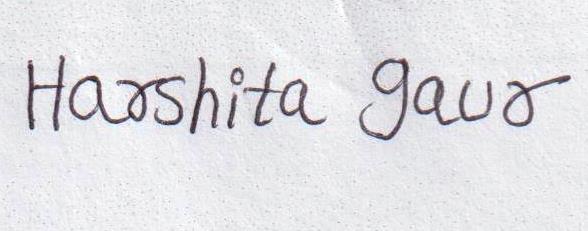 Harshita gaur